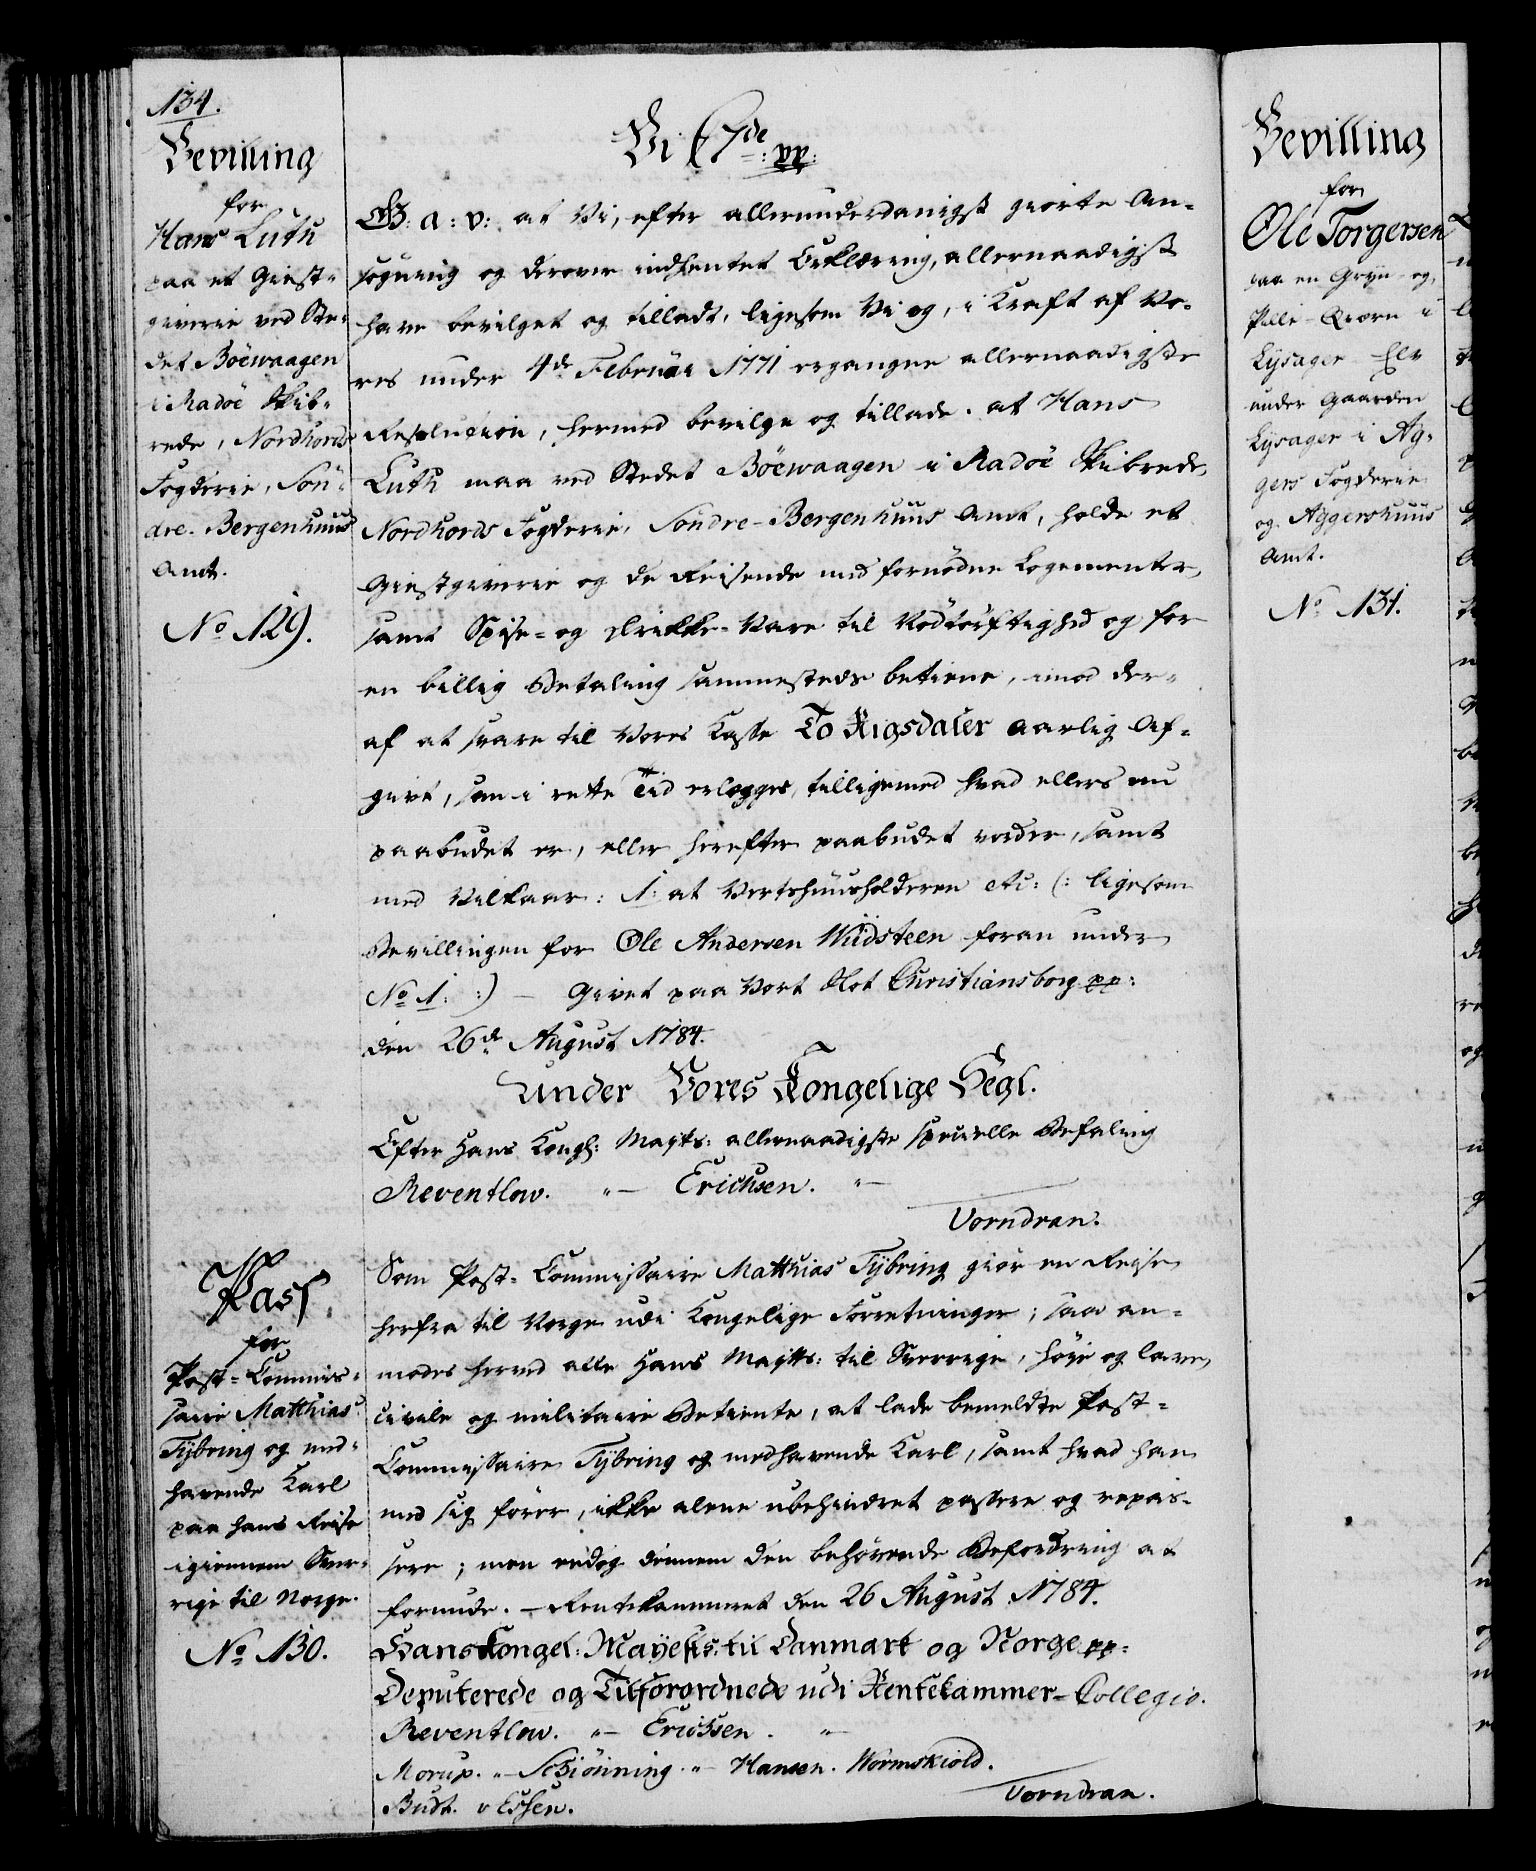 134.
Bevilling
for
Hans Luth
paa et Giest-
giverie ved Ste-
det Böewaagen
i Radöe Skib-
rede, Nordhords
Fogderie, Sön-
dre-Bergenhuus
Amt.
No 129.
Vi C 7de: pp:
G: a: v: at Vi, efter allerunderdanigst giorte An-
søgning og derover indhentet Erklæring, allernaadigst
have bevilget og tilladt, ligesom Vi og, i Kraft af Vo-
res under 4de Februar 1771 ergangne allernaadigste
Resolution, hermed bevilge og tillade, at Hans
Luth maa ved Stedet Böewaagen i Radöe Skibrede,
Nordhords Fogderie, Söndre-Bergenhuus Amt, holde et
Giestgiverie og de Reisende med fornødne Logementer,
samt Spise- og Drikke-Vare til Nødtørftighed og for
en billig Betaling sammesteds betiene, imod der-
af at svare til Vores Kasse To Rigsdaler aarlig Af-
givt, som i rette Tid erlægges, tilligemed hvad ellers nu
paabudet er, eller herefter paabudet vorder, samt
med Vilkaar: 1: at Vertshuusholderen etc: (: ligesom
Bevillingen for Ole Andersen Wiidsteen foran under
No 1: :) — Givet paa Vort Slot Christiansborg pp:
den 26de August 1784.
Under Vores Kongelige Segl.
Efter Hans Kongl: Maytts: allernaadigste specielle Befaling
Reventlow. "— Erichsen. "—
Vorndran.
Pass
for
Post-Commis-
saire Matthias
Tybring og med-
havende Karl
paa hans Reise
igiennem Sver-
rige til Norge.
No 130.
Som Post-Commissaire Matthias Tybring giør en Reise
herfra til Norge udi Kongelige Forretninger; saa an-
modes herved alle Hans Maytts: til Sverrige, høje og lave,
civile og militaire Betiente, at lade bemeldte Post-
Commissaire Tybring og medhavende Karl, samt hvad han
med sig fører, ikke alene ubehindret passere og repas-
sere; men endog dennem den behørende Befordring at
forunde. — Rentekammeret den 26 August 1784.
Hans Kongel: Mayests: til Danmark og Norge pp:
Deputerede og Tilforordnede udi Rentekammer-Collegio.
Reventlow. "— Erichsen. "—
Morup. "— Schiönning "— Hansen. Wormskiold.
Budt. v Essen.
Vorndran.
Bevilling
for
Ole Torgersen
paa en Gryn- og
Pille-Qværn i
Lysager Elv
under Gaarden
Lysager i Ag-
gers Fogderie
og Aggershuus
Amt.
No 131.